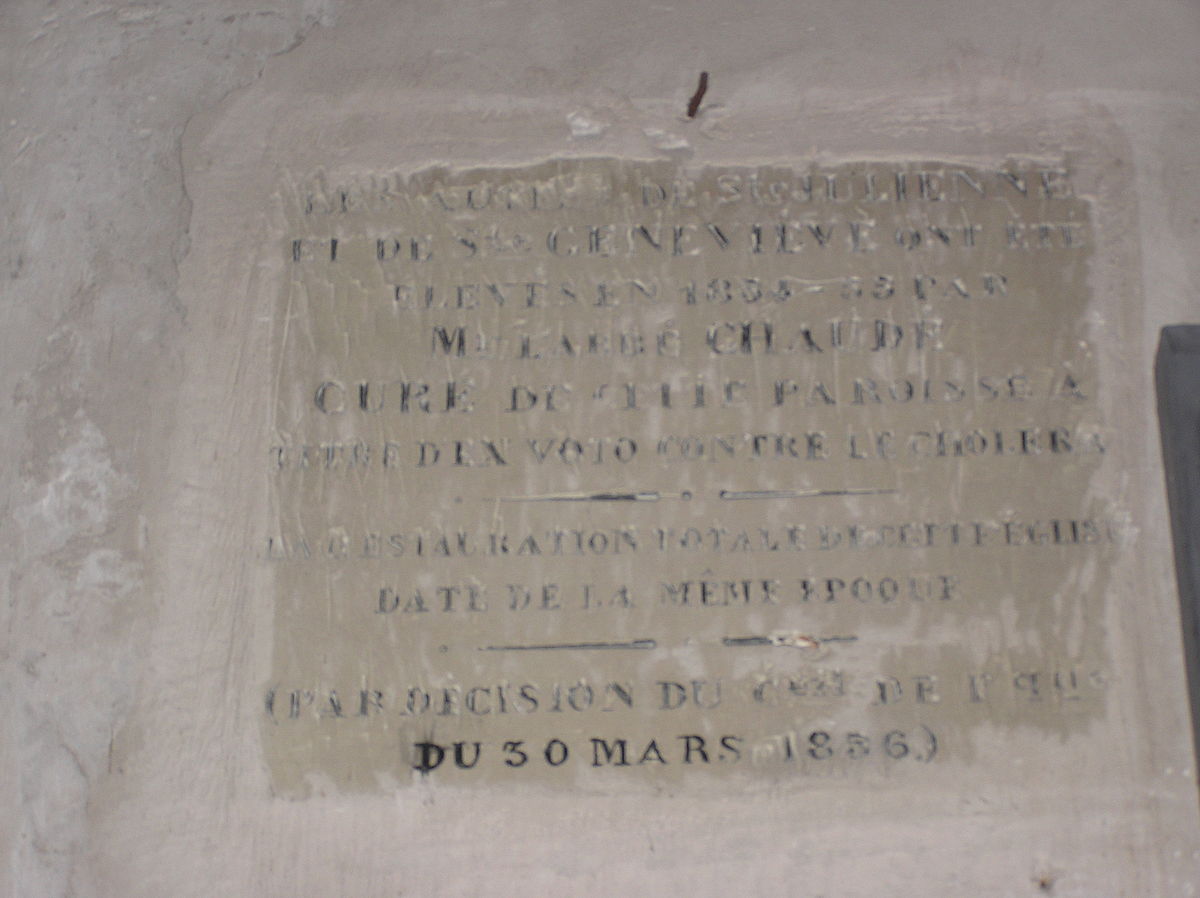 DE Ste JULIENNE
ET DE Ste GENEVIEVE ONT ETE
ELEVES EN PAR
Mr L'ABBÉ CHAUDE
CURÉ DE CETTE PAROISSE A
TITRE D'EX VOTO CONTRE LE CHOLERA
LA RESTAURATION TOTALE DE CETTE EGLISE
DATE DE LA MÊME EPOQUE
(PAR DÉCISION DU DE
DU 30 MARS 1836.)